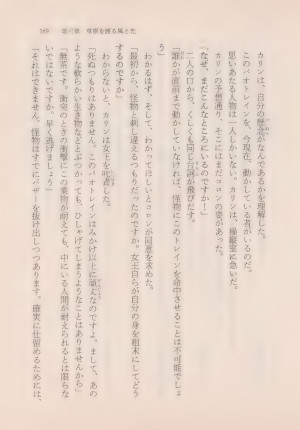 169　第六章　草原を渡る風と光
カリンは、自分の懸念がなんであるかを理解した。
このパオトレインを、今現在、動かしている者がいるのだ。
思いあたる人物は一人しかいない。カリンは、操縦室に急いだ。
カリンの予想通り、そこにはまだコロンの姿があった。
「なぜ、まだこんなところにいるのですか！」
二人の口から、くしくも同じ台詞が飛びだす。
「誰かが直前まで動かしていなければ、怪物にこのトレインを命中させることは不可能でしょ
う」
わかるはず、そして、わかってほしいとコロンが同意を求めた。
「最初から、怪物と刺し違えるつもりだったのですか。女王自らが自分の身を粗末にしてどう
するのですか」
わからないと、カリンは女王を叱責した。
「死ぬつもりはありません。このパオトレインはみかけ以上に頑丈なのですよ。まして、あの
ような軟らかい生き物などとぶつかっても、ひしゃげてしまうようなことはありませんから」
「無茶です。衝突のときの衝撃にこの乗物が耐えても、中にいる人間が耐えられるとは限らな
いではないですか。早く逃げましょう」
「それはできません。怪物はすでにバザーを抜け出しつつあります。確実に仕留めるためには、